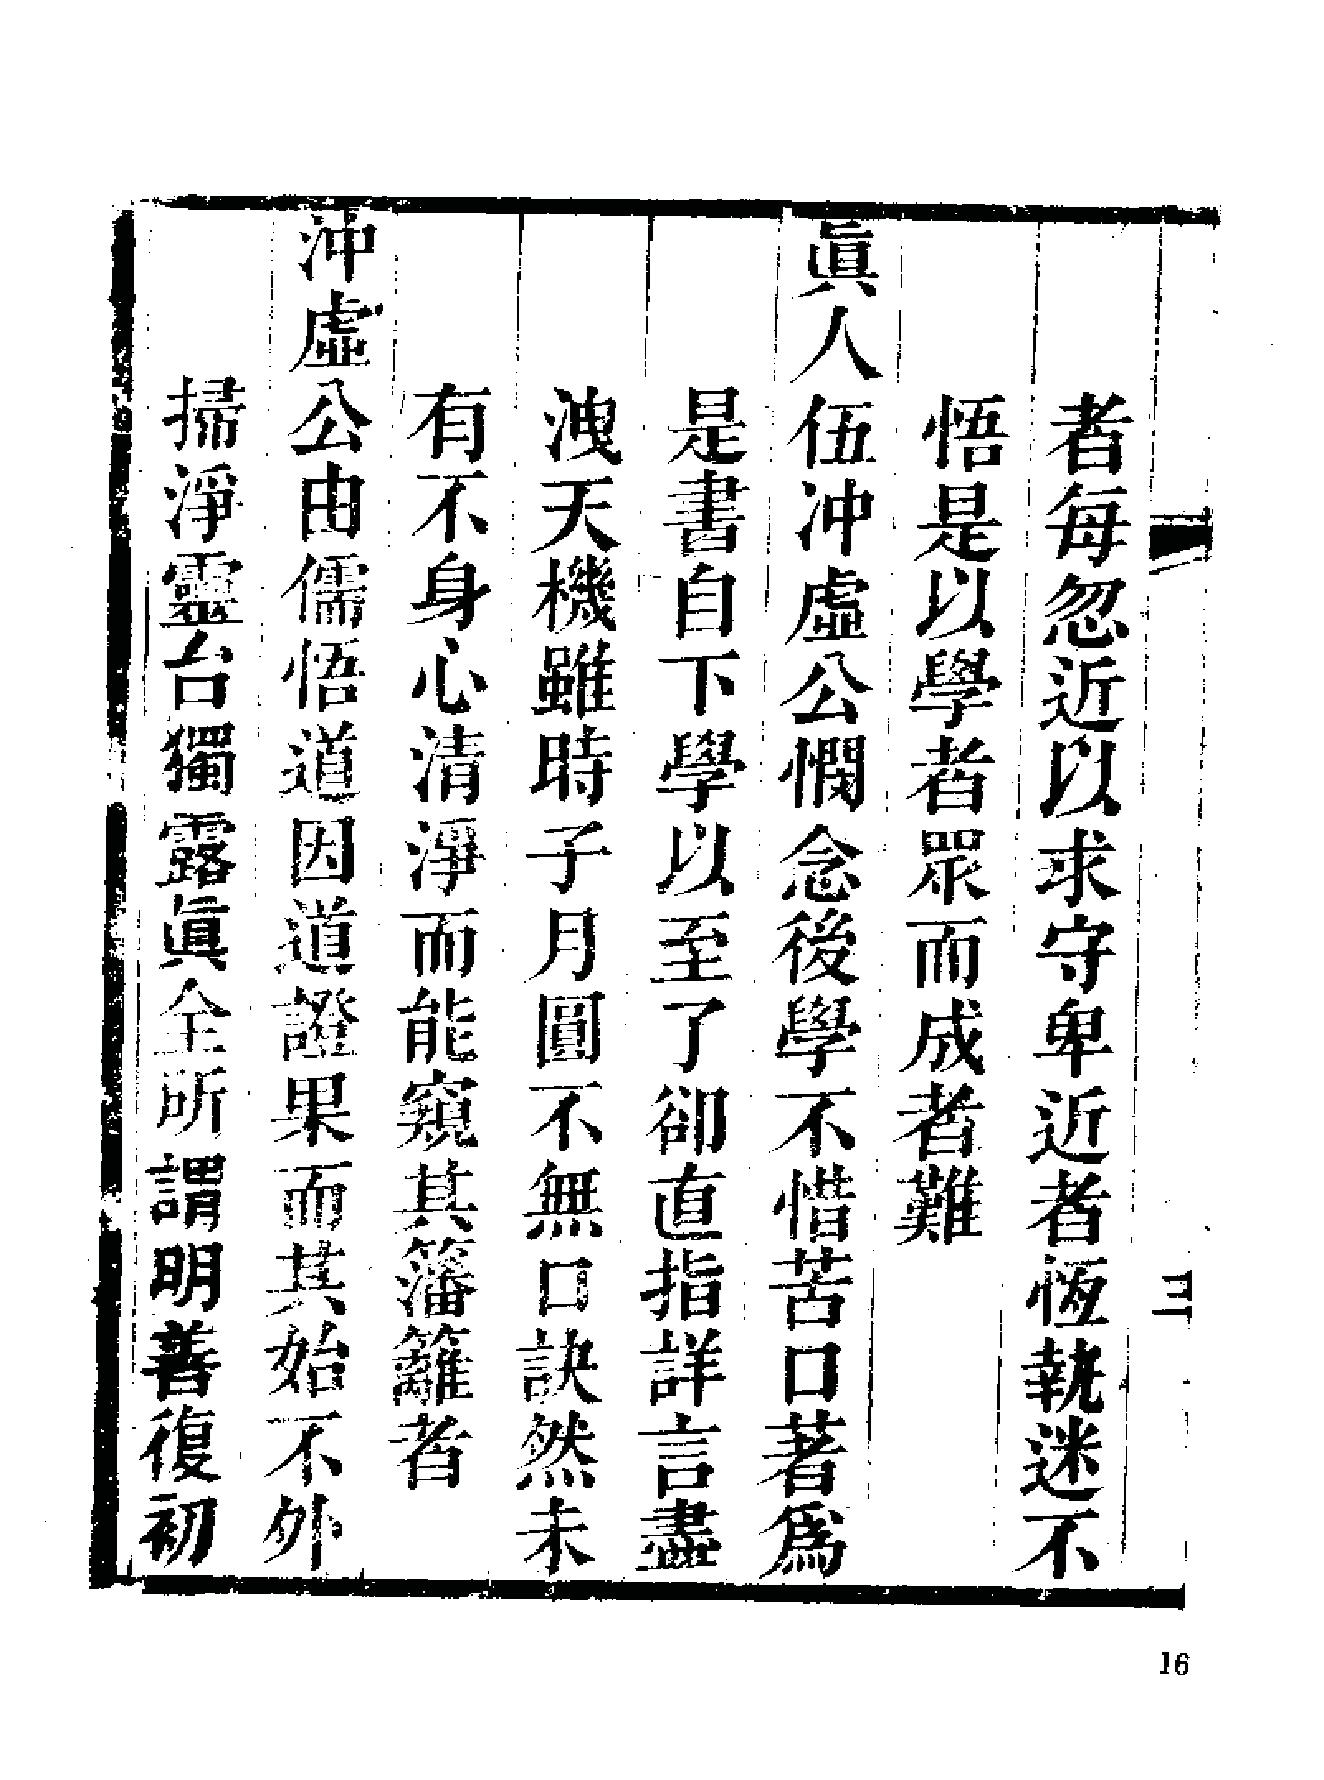 者每忽近以求守卑近者恆執迷不
悟是以學者眾而成者難
眞人伍冲虛公憫念後學不惜苦口著爲
是書自下學以至了卻直指詳言盡
洩天機雖時子月圓不無口訣然未
有不身心清淨而能窺其籓籬者
沖虛公由儒悟道因道證果而其始不外
掃淨靈台獨露眞全所謂明善復初
三
16